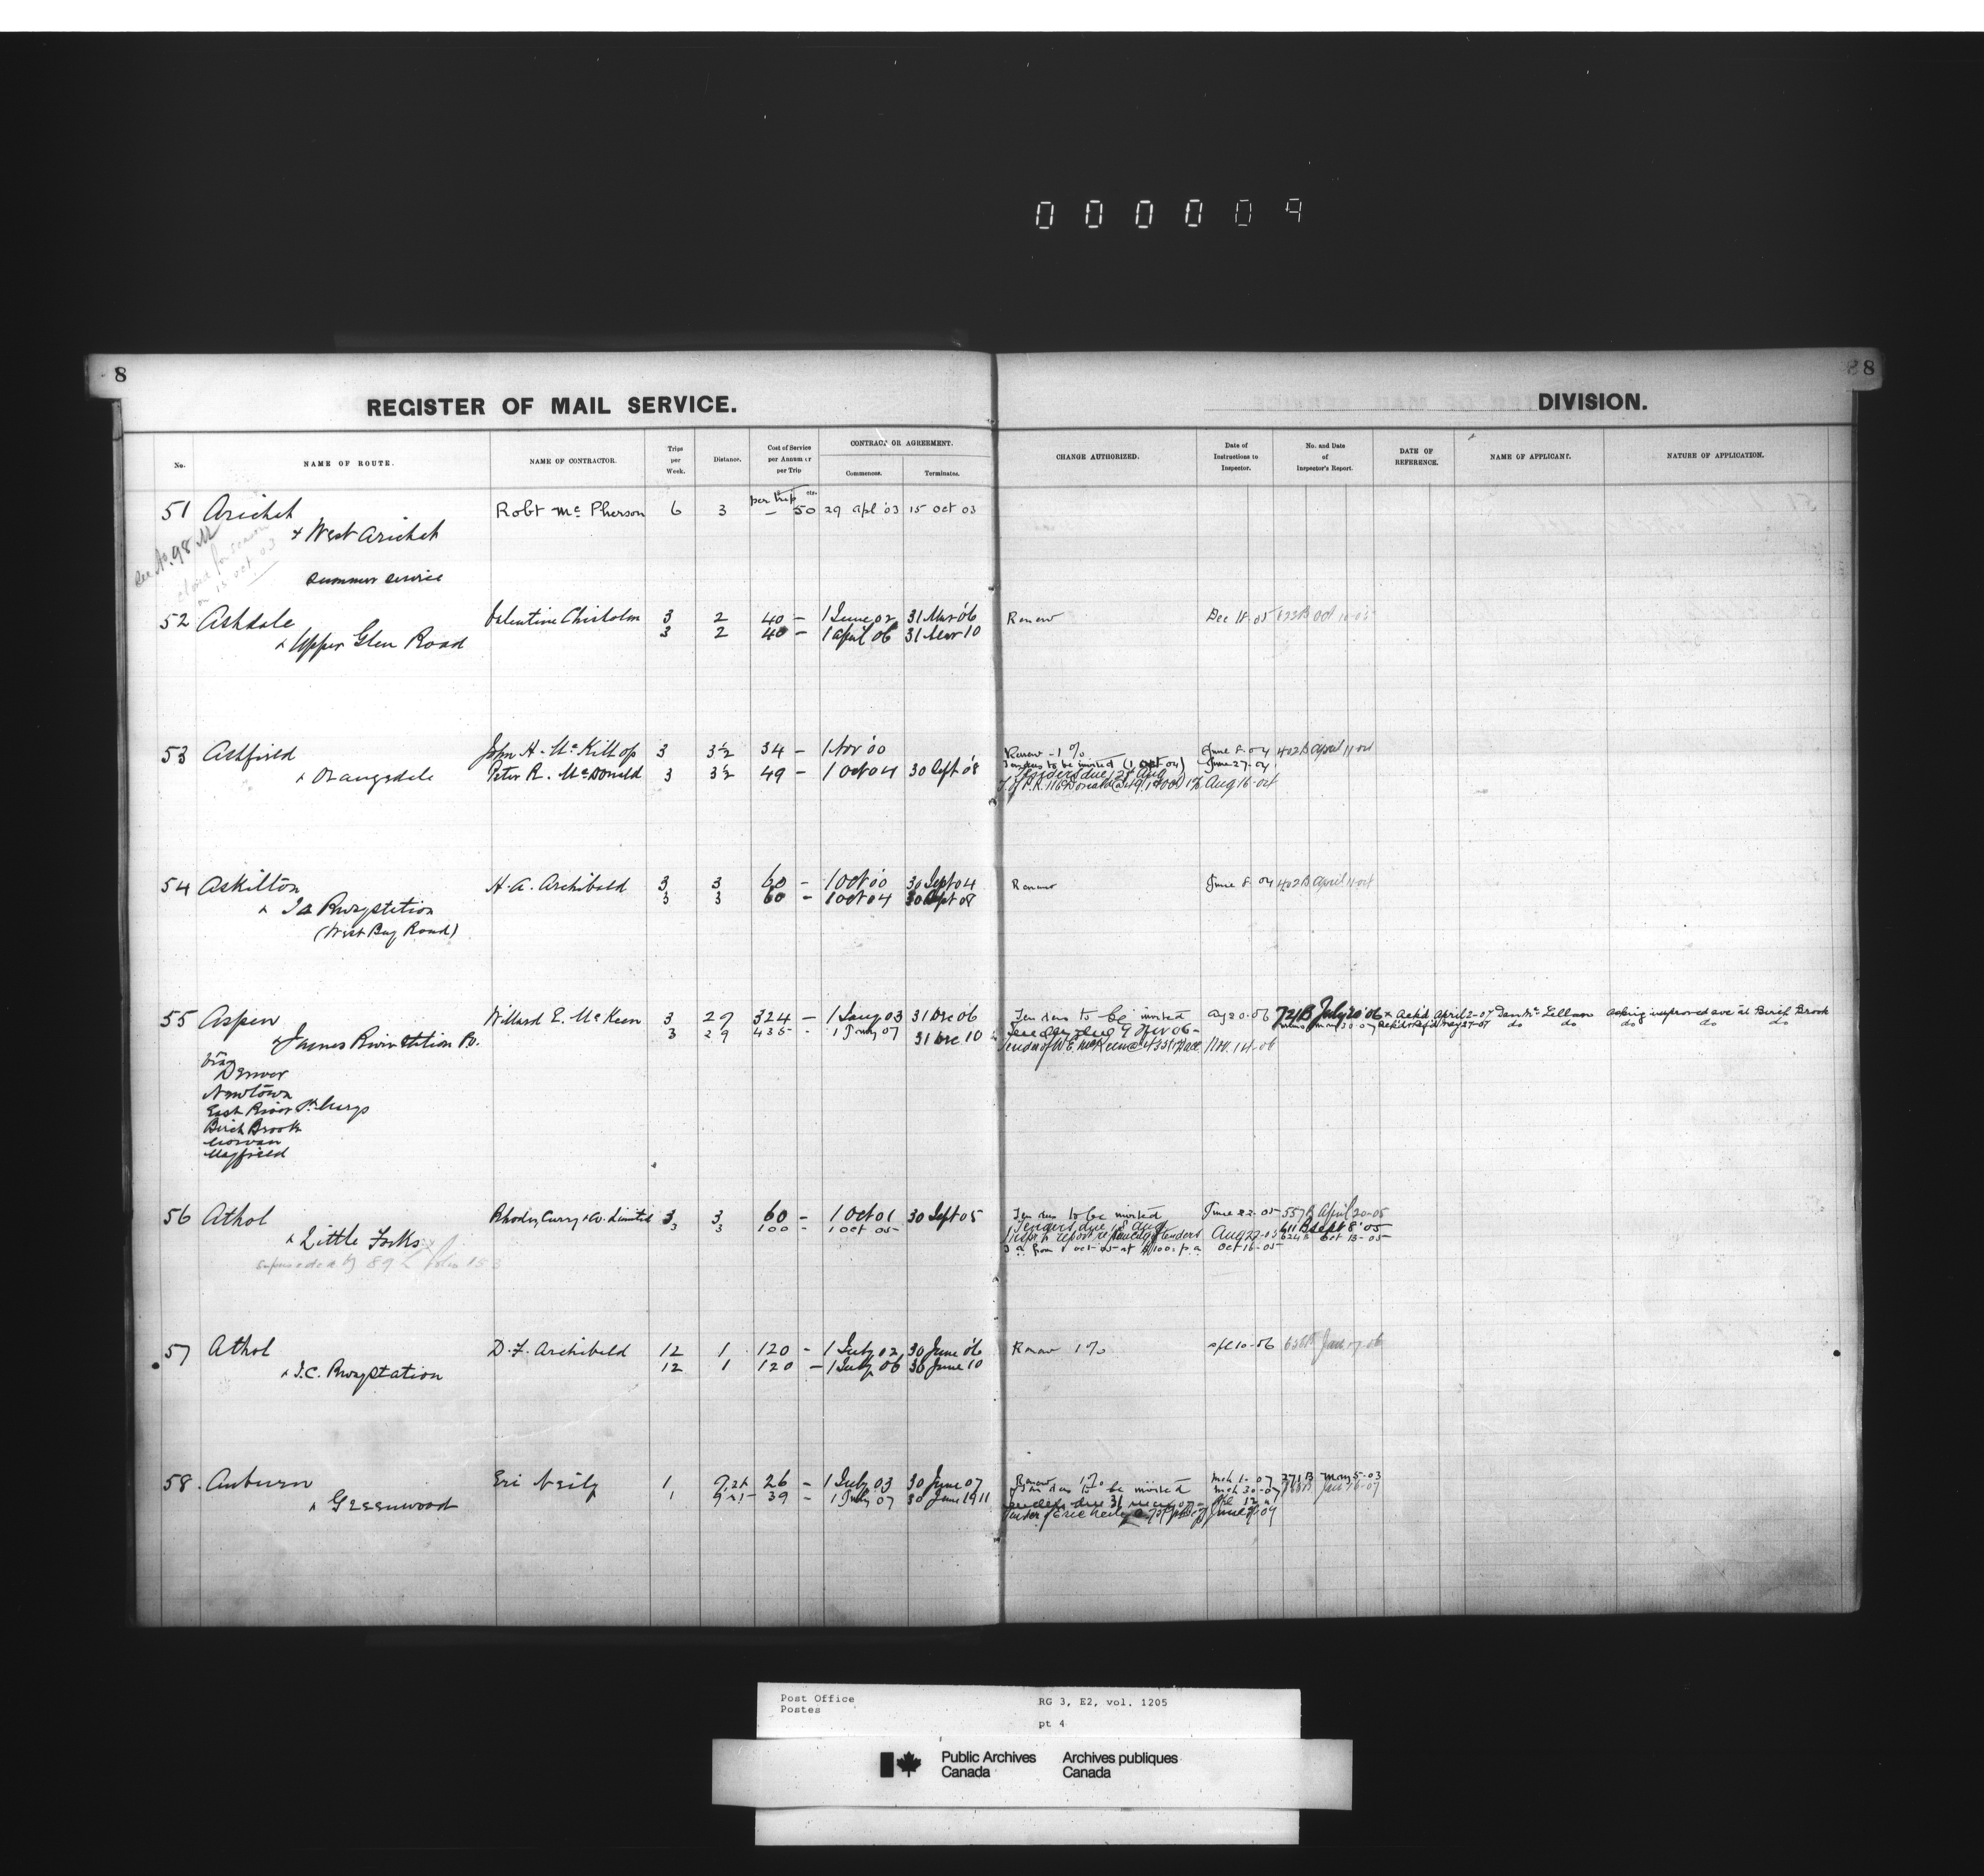 000009
8
8
REGISTER OF MAIL SERVICE.
DIVISION.
No.
NAME OF ROUTE.
NAME OF CONTRACTOR.
Trips per Week.
Distance.
Cost of Service per Annum or per Trip
CONTRACT OR AGREEMENT.
Commences.
Terminates.
CHANGE AUTHORIZED.
Date of Instructions to Inspector.
No. and Date of Inspector's Report.
DATE OF REFERENCE.
NAME OF APPLICANT.
NATURE OF APPLICATION.
51 Arichat Robt McPherson 6 3 per trip — 50 29 Apl '03 15 Oct 03
& West Arichat
See No. 98
closed for season
on 15 Oct 03
Summer Service
52 Ashdale Valentine Chisholm 3 2 40 — 1 June 02 31 Mar '06 Renew Dec 18-05 Oct
3 2 40 — 1 April 06 31 Mar 10
& Upper Glen Road
53 Ashfield John H. McKillop 3 3½ 34 — 1 Nov '00 Renew - 1% June 8-04 402B April 11-04
Tenders to be invited (1 Oct 04) June 27-04
& Orangedale Peter R. McDonald 3 3½ 49 — 1 Oct 04 30 Sept '08 Tenders due 28 Aug
Aug 16-04
54 Askilton H. A. Archibald 3 3 60 — 1 Oct '00 30 Sept 04 Renew June 8-04 402B April 11-04
3 3 60 — 1 Oct 04 30 Sept 08
& Rwy station
(West Bay Road)
55 Aspen Willard E. McKeen 3 29 324 — 1 Jany 03 31 Dec 06 Tenders to be invited Aug 20-06 721B July 20 '06 April 2-07 asking improved sve at Birch Brook
3 29 435 — 1 Jany 07 31 Dec 10 do do do do do
& James River Station P.O. Nov. 14-06
via
Denver
Newtown
East River St Marys
Birch Brook
Mayfield
56 Athol Rhodes, Curry & Co. Limited 3 3 60 — 1 Oct 01 30 Sept 05 Tenders to be invited June 22-05 557B April 20-05
3 3 100 — 1 Oct 05 — Tenders due 18 Aug 611B Sept 8 '05
& Little Forks Aug 22-05 624B Oct 13-05
from 1 Oct 05 at $100 p.a Oct 16-05
superseded by 892 folio 153
57 Athol D. F. Archibald 12 1 120 — 1 July 02 30 June '06 Renew 1% Apl 10-06 Jan 17-06
12 1 120 — 1 July 06 30 June 10
& I.C. Rwy Station
58. Auburn Eri Neily 1 26 — 1 July 03 30 June 07 Renew 1% Mch 1-07 271B May 5-03
1 39 — 1 July 07 30 June 1911 Tenders to be invited Mch 30-07
& Greenwood
Post Office
Postes
RG 3, E2, vol. 1205
pt 4
Public Archives
Canada
Archives publiques
Canada